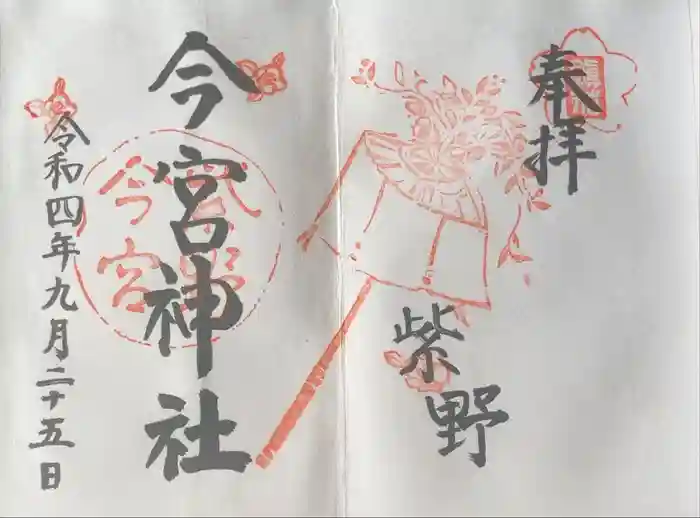 奉拝
紫野
今宮神社
令和四年九月二十五日
今宮